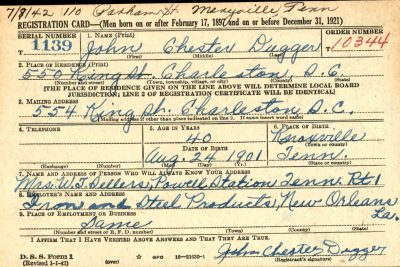 7/8/42 110 Parham St. Maryville, Tenn
REGISTRATION CARD—(Men born on or after February 17, 1897 and on or before December 31, 1921)
SERIAL NUMBER 1. NAME (Print) ORDER NUMBER
T 1139 John Chester Dugger 10344
(First) (Middle) (Last)
2. PLACE OF RESIDENCE (Print)
550 King St. Charleston, S.C.
(Number and street) (Town, township, village, or city) (County) (State)
[THE PLACE OF RESIDENCE GIVEN ON THE LINE ABOVE WILL DETERMINE LOCAL BOARD
JURISDICTION; LINE 2 OF REGISTRATION CERTIFICATE WILL BE IDENTICAL]
3. MAILING ADDRESS
554 King St. Charleston S.C.
[Mailing address if other than place indicated on line 2. If same insert word same]
4. TELEPHONE 5. AGE IN YEARS 6. PLACE OF BIRTH
40 Knoxville
DATE OF BIRTH (Town or county)
Aug. 24 1901 Tenn.
(Exchange) (Number) (Mo.) (Day) (Yr.) (State or country)
7. NAME AND ADDRESS OF PERSON WHO WILL ALWAYS KNOW YOUR ADDRESS
Mrs. W. T. Sellers, Powell Station Tenn. Rt. 1
8. EMPLOYER'S NAME AND ADDRESS
Iron and Steel Products, New Orleans
La.
9. PLACE OF EMPLOYMENT OR BUSINESS
Same
(Number and street or R. F. D. number) (Town) (County) (State)
I AFFIRM THAT I HAVE VERIFIED ABOVE ANSWERS AND THAT THEY ARE TRUE.
D. S. S. Form 1 (over) GPO 16—21630-1 John Chester Dugger
(Revised 1-1-42) (Registrant's signature)